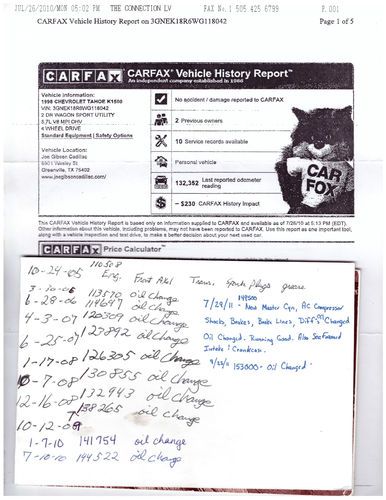 JUL/26/2010/MON 05:02 PM THE CONNECTION LV FAX No. 1 505 425 6799 P. 001
CARFAX Vehicle History Report on 3GNEK18R6WG118042 Page 1 of 5
CARFAX CARFAX Vehicle History Report™
An independent company established in 1986
Vehicle Information:
1998 CHEVROLET TAHOE K1500
VIN: 3GNEK18R6WG118042
2 DR WAGON SPORT UTILITY
5.7L V8 MPI OHV
4 WHEEL DRIVE
Standard Equipment | Safety Options
Vehicle Location:
Joe Gibson Cadillac
Greenville, TX 75402
www.joegibsoncadillac.com/
No accident / damage reported to CARFAX
2 Previous owners
10 Service records available
Personal vehicle
132,362 Last reported odometer reading
- $230 CARFAX History Impact
CAR
FOX
This CARFAX Vehicle History Report is based only on information supplied to CARFAX and available as of 7/26/10 at 5:13 PM (EDT).
Other information about this vehicle, including problems, may not have been reported to CARFAX. Use this report as one important tool,
along with a vehicle inspection and test drive, to make a better decision about your next used car.
CARFAX Price Calculator™
10-24-05 110508 Eng. Front Axl Trans. Spark Plugs grease
3-10-06 113570 oil change
6-28-06 114697 oil change
4-3-07 120309 oil change
6-25-07 123892 oil change
1-17-08 126305 oil change
10-7-08 130855 oil change
12-16-08 132943 oil change
10-12-09 138265 oil change
1-7-10 141754 oil change
7-10-10 144522 oil change
7/29/11 - New Master Cyn, AC Compressor
Shocks, Brakes, Brake Lines, Diff's Changed
Oil Changed. Running Good. Also Seafoamed
Intake & Crankcase.
153000 - Oil Changed